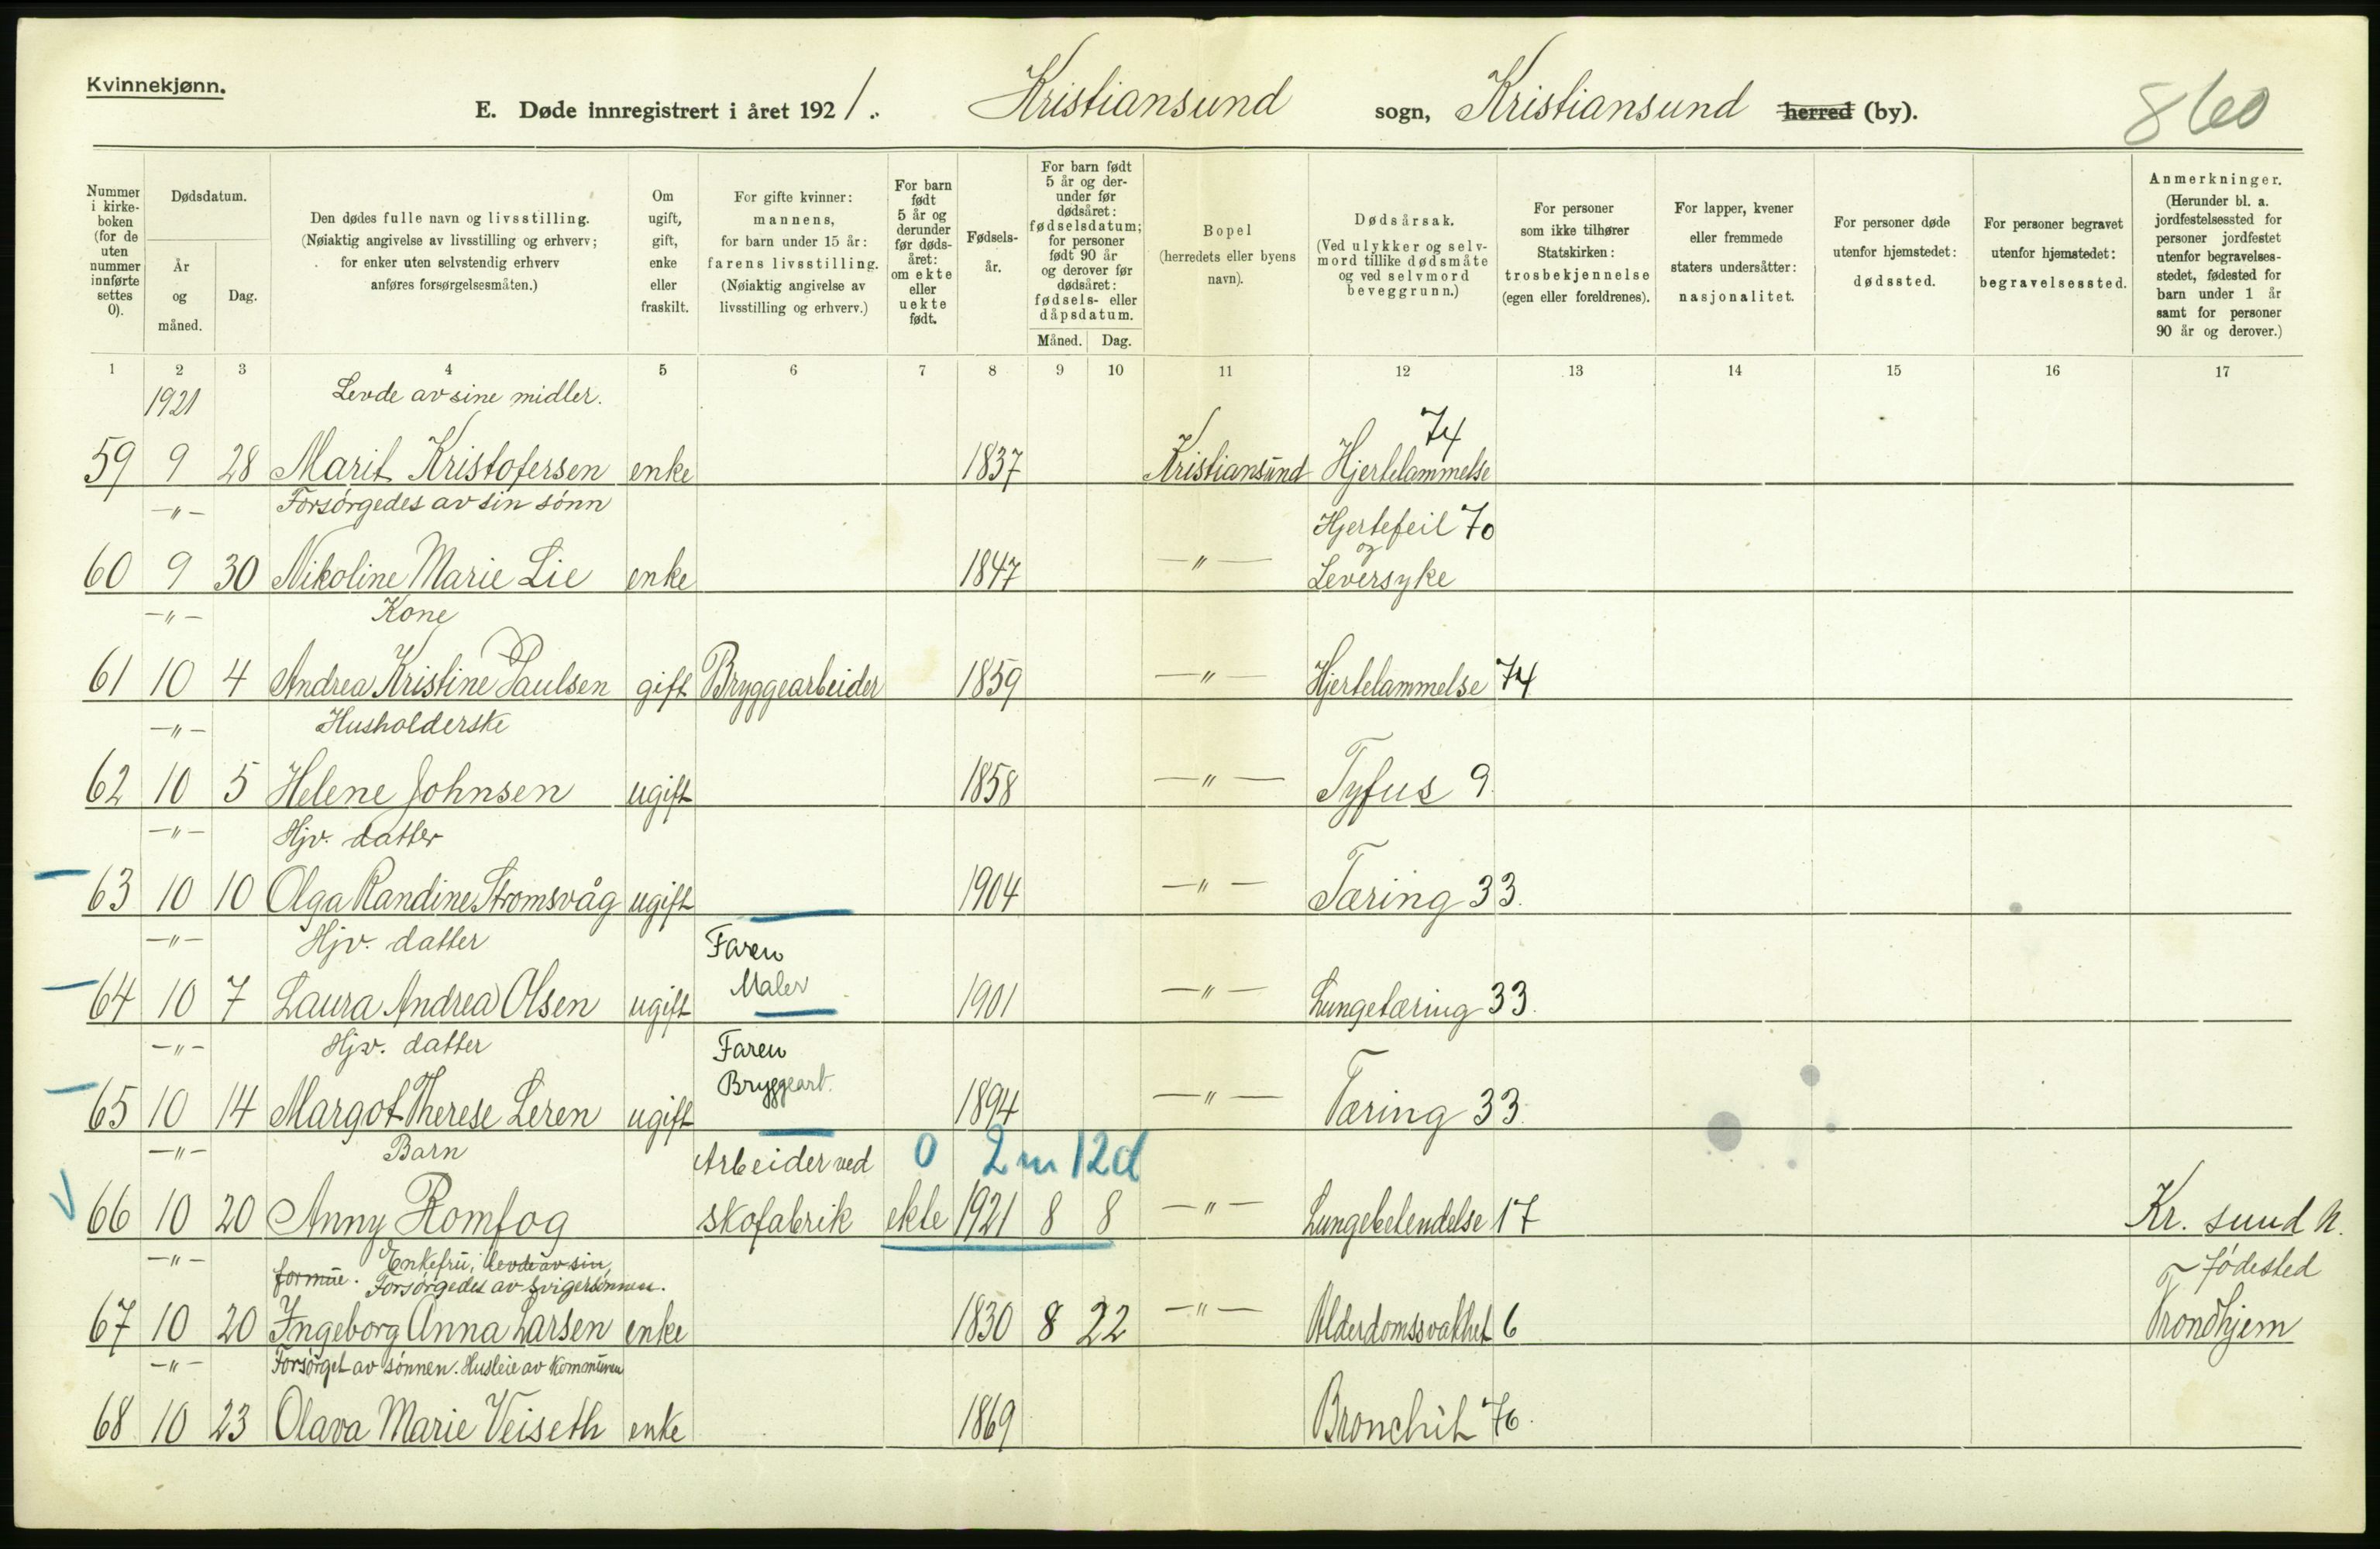 Kvinnekjønn.
E. Døde innregistrert i året 1921. Kristiansund sogn, Kristiansund herred (by). 860
Nummer i kirke-boken (for de uten nummer innførte settes 0).
Dødsdatum.
År og måned.
Dag.
Den dødes fulle navn og livsstilling. (Nøiaktig angivelse av livsstilling og erhverv; for enker uten selvstendig erhverv anføres forsørgelsesmåten.)
Om ugift, gift, enke eller fraskilt.
For gifte kvinner: mannens, for barn under 15 år: farens livsstilling. (Nøiaktig angivelse av livsstilling og erhverv.)
For barn født 5 år og derunder før døds-året: om ekte eller uekte født.
Fødsels-år.
For barn født 5 år og der-under før dødsåret: fødselsdatum; for personer født 90 år og derover før dødsåret: fødsels- eller dåpsdatum.
Måned. Dag.
Bopel (herredets eller byens navn).
Dødsårsak. (Ved ulykker og selv-mord tillike dødsmåte og ved selvmord beveggrunn.)
For personer som ikke tilhører Statskirken: trosbekjennelse (egen eller foreldrenes).
For lapper, kvener eller fremmede staters undersåtter: nasjonalitet.
For personer døde utenfor hjemstedet: dødssted.
For personer begravet utenfor hjemstedet: begravelsessted.
Anmerkninger. (Herunder bl. a. jordfestelsessted for personer jordfestet utenfor begravelses-stedet, fødested for barn under 1 år samt for personer 90 år og derover.)
1 2 3 4 5 6 7 8 9 10 11 12 13 14 15 16 17
1921 Levde av sine midler.
74
59 9 28 Marit Kristofersen enke 1837 Kristiansund Hjertelammelse
—"— Forsørgedes av sin sønn
Hjertefeil 70
og
60 9 30 Nikoline Marie Lie enke 1847 —"— Leversyke
—"— Kone
61 10 4 Andrea Kristine Paulsen gift Bryggearbeider 1859 —"— Hjertelammelse 74
—"— Husholderske
62 10 5 Helene Johnsen ugift 1858 —"— Tyfus 9
—"— Hjv. datter
63 10 10 Olga Randine Strømsvåg ugift 1904 —"— Tæring 33.
—"— Hjv. datter Faren
Maler
64 10 7 Laura Andrea Olsen ugift 1901 —"— Lungetæring 33.
—"— Hjv. datter Faren
Bryggearb.
65 10 14 Margot Therese Leren ugift 1894 —"— Tæring 33.
—"— Barn Arbeider ved 0 2m 12d
66 10 20 Anny Romfog skofabrik ekte 1921 8 8 —"— Lungebetendelse 17 Kr. sund N.
—"— Enkefru, levde av sin fødested
formue. Forsørgedes av svigersønnen.
67 10 20 Ingeborg Anna Larsen enke 1830 8 22 —"— Alderdomssvakhet 6 Trondhjem
—"— Forsørget av sønnen. Husleie av kommunen
68 10 23 Olava Marie Veiseth enke 1869 Bronchit 76.